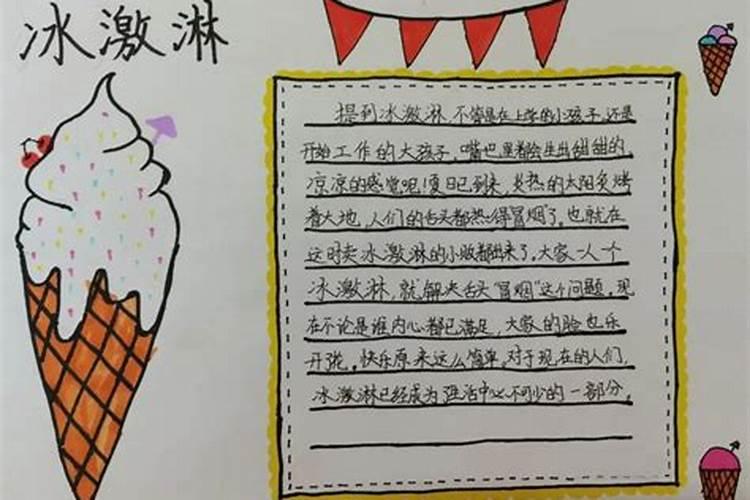 冰激淋
提到冰激淋不管是在上学的小孩子,还是
开始工作的大孩子,嘴也里都会生出甜甜的、
凉凉的感觉呢!夏日已到来,炎热的太阳炙烤
着大地,人们的舌头都热得"冒烟"了。也就在
这时卖冰激淋的小贩都出来了。大家一人一个
冰激淋,就解决舌头"冒烟"这个问题。现
在不论是谁内心都已满足,大家的脸也乐
开张。快乐原来这么简单,对于现在的人们,
冰激淋已经成为生活中必不可少的一部分。